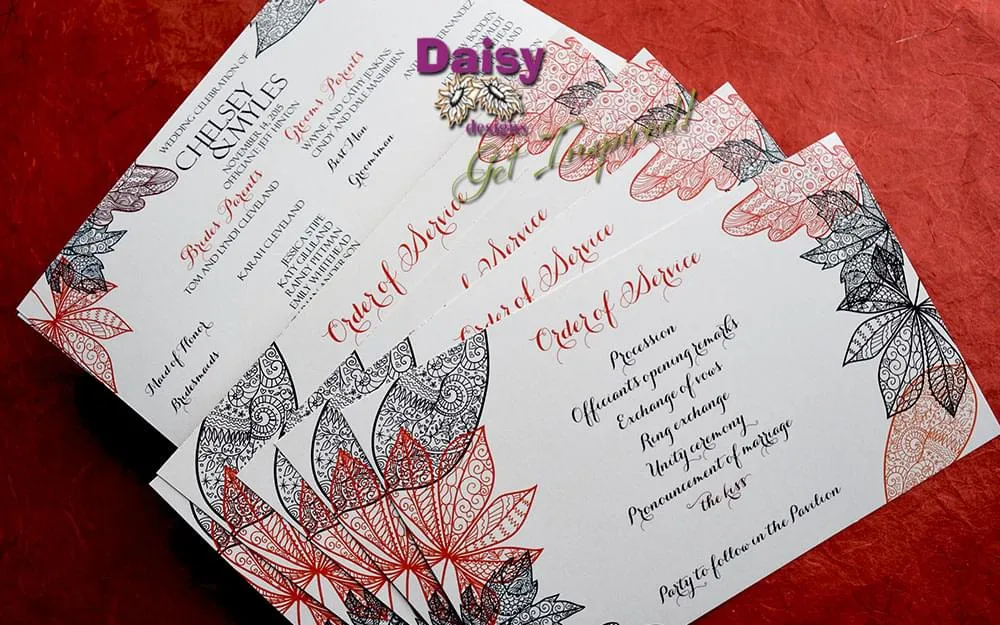 Daisy
designs
Get Inspired!
WEDDING CELEBRATION OF
CHELSEY
& MYLES
NOVEMBER 14, 2015
OFFICIANT: JEFF HINTON
Brides Parents
TOM AND LYNDI CLEVELAND
KARAH CLEVELAND
JESSICA STIPE
KATY GILLILAND
RAINEY PITTMAN
EMILY WHITEHEAD
ANDERSON
Maid of Honor
Bridesmaids
Grooms Parents
WAYNE AND CATHY JENKINS
CINDY AND DALE MASHBURN
Best Man
Groomsman
Order of Service
Order of Service
Order of Service
Order of Service
Procession
Officiants opening remarks
Exchange of vows
Ring exchange
Unity ceremony
Pronouncement of marriage
the kiss
Party to follow in the Pavilion